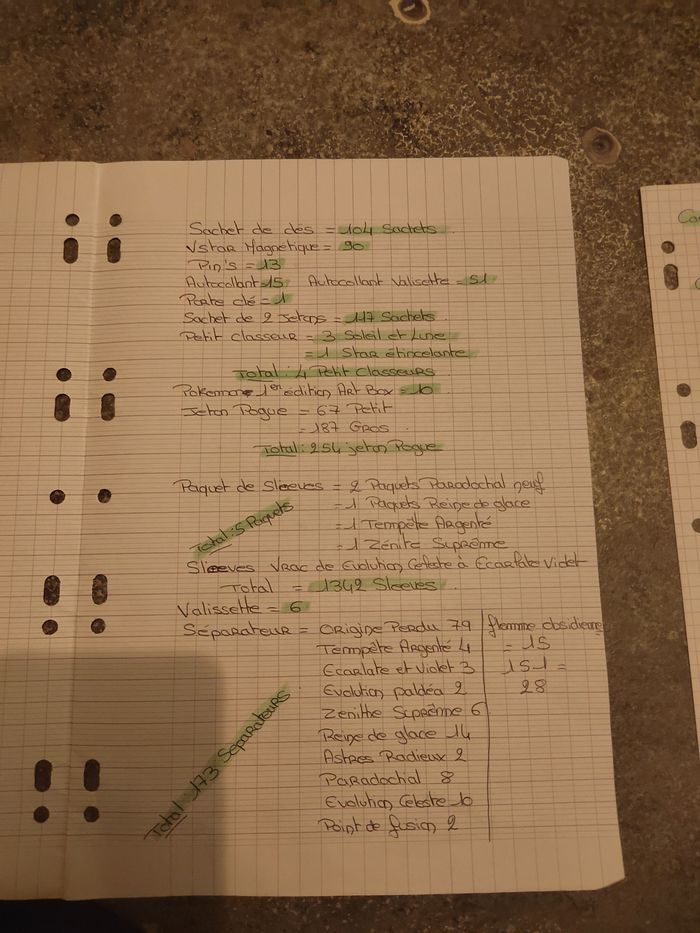 Sachet de dés = 104 Sachets.
Vstar Magnétique = 90
Pin's = 13
Autocollant 15 Autocollant Valisette = 51
Porte clé = 1
Sachet de 2 Jetons = 117 Sachets
Petit classeur = 3 Soleil et Lune
= 1 Star étincelante
Total : 4 Petit Classeurs
Pokemon 1er édition Art Box = 10
Jeton Pogue = 67 Petit
= 187 Gros
Total : 254 jeton Pogue
Paquet de Sleeves = 2 Paquets Paradochal neuf
= 1 Paquets Reine de glace
= 1 Tempête Argenté
= 1 Zénite Suprême
Total : 5 Paquets
Sleeves Vrac de Evolution Celeste à Ecarlate Violet
Total = 1342 Sleeves.
Valissette = 6
Séparateur = Origine Perdu 79
Tempête Argenté 4
Ecarlate et Violet 3
Evolution paldéa 2
Zenithe Suprême 6
Reine de glace 14
Astres Radieux 2
Paradochal 8
Evolution Celeste 10
Point de fusion 2
Total : 173 Séparateurs
flemme obsidienne
= 15
151 =
28